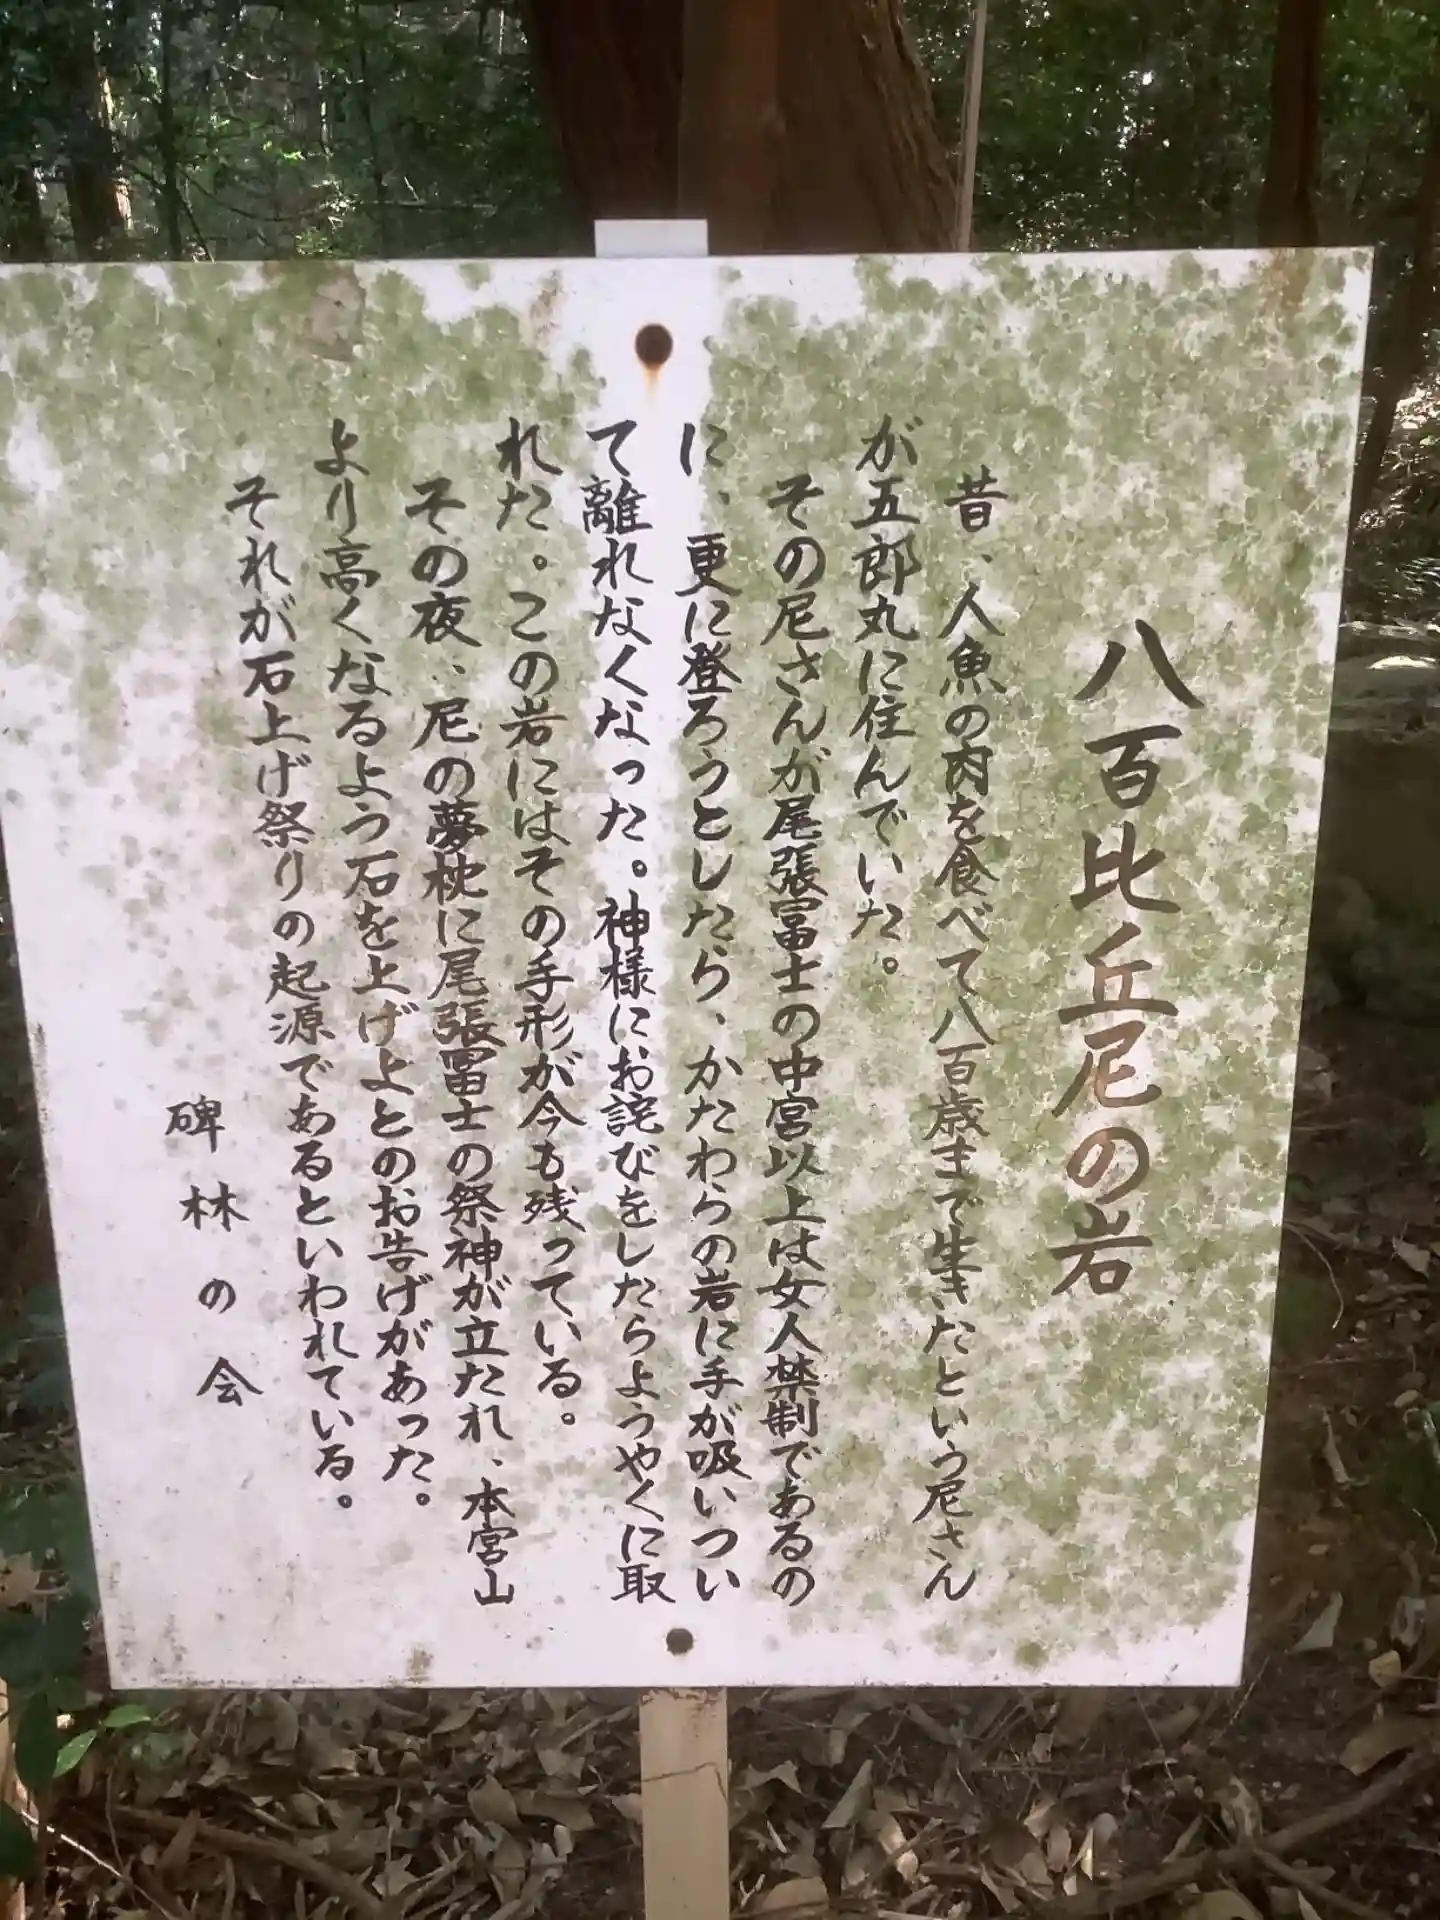 八百比丘尼の岩
昔、人魚の肉を食べて八百歳まで生きたという尼さん
が五郎丸に住んでいた。
その尼さんが尾張冨士の中宮以上は女人禁制であるの
に、更に登ろうとしたら、かたわらの岩に手が吸いつい
て離れなくなった。神様にお詫びをしたらようやくに取
れた。この岩にはその手形が今も残っている。
その夜、尼の夢枕に尾張冨士の祭神が立たれ、本宮山
より高くなるよう石を上げ上とのお告げがあった。
それが石上げ祭りの起源であるといわれている。
碑林の会